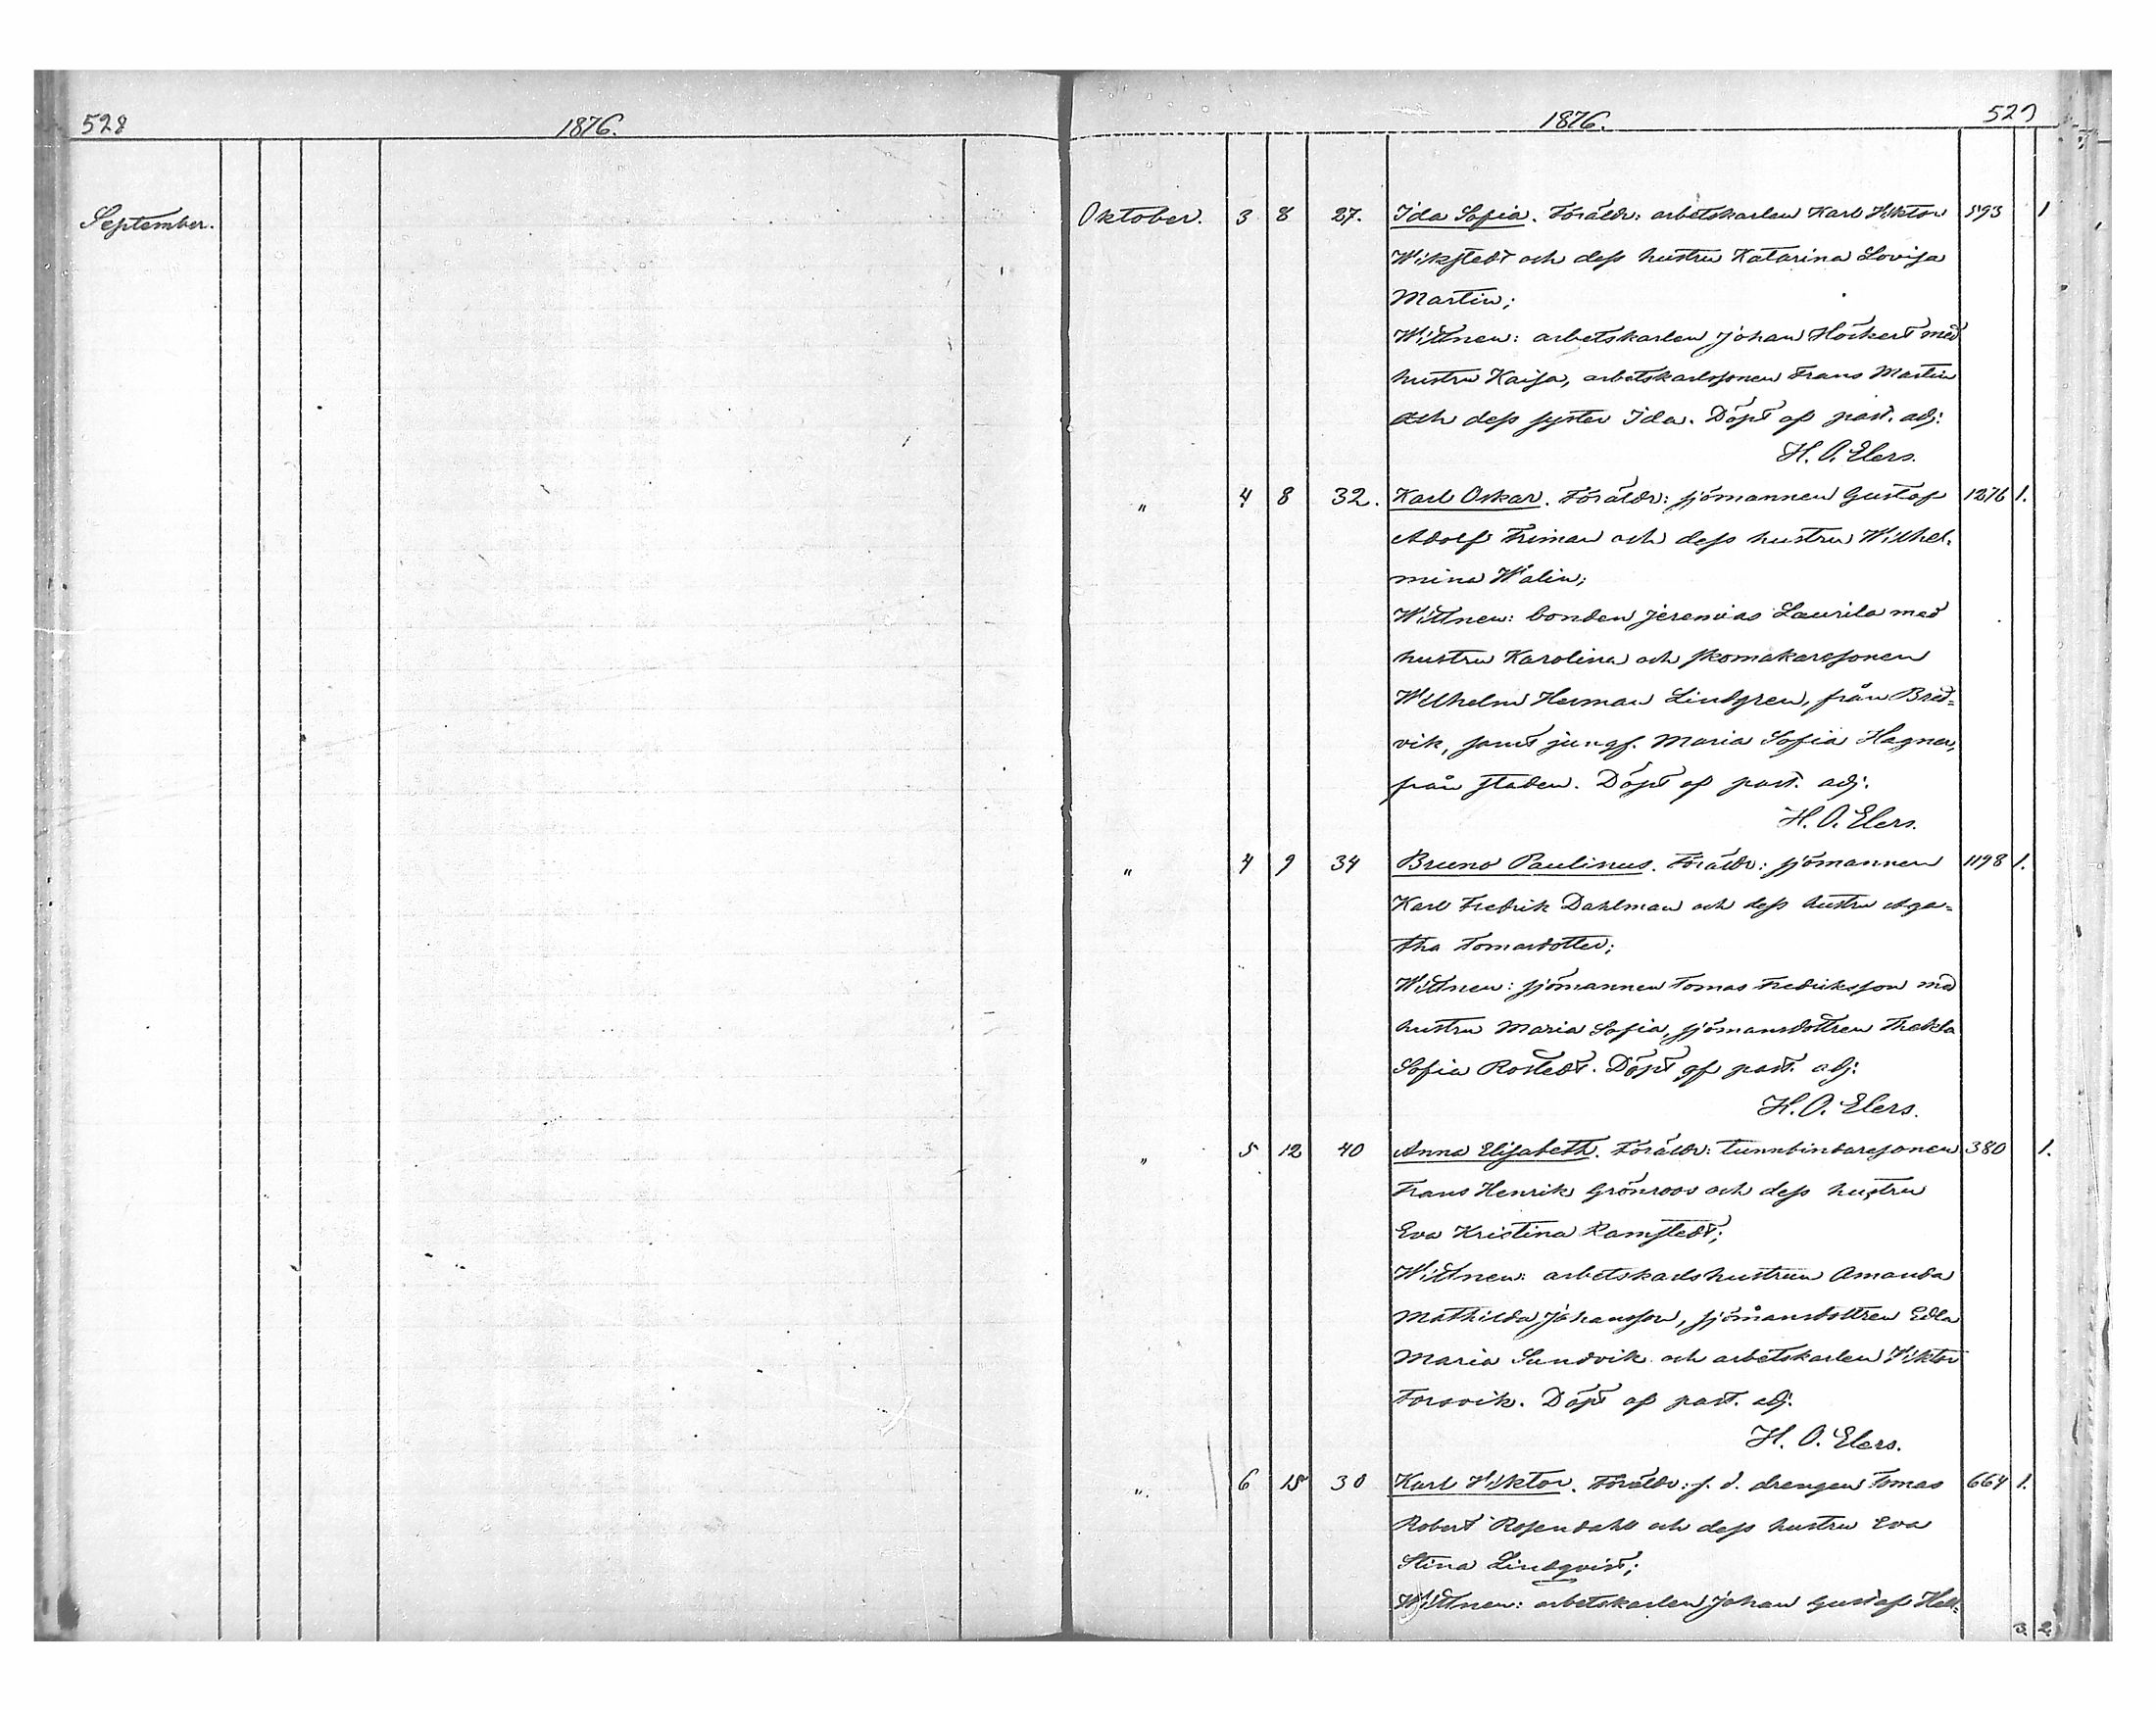 528
1876.
September.
1876.
529
Oktober. 3 8 27. Ida Sofia. Föräldr: arbetskarlen Karl Viktor 593 1
Wikstedt och dess hustru Katarina Lovisa
Martin;
Wittnen: arbetskarlen Johan Höckert med
hustru Kaisa, arbetskarlssonen Frans Martin
och dess syster Ida. Döpt af past. adj.
H. O. Elers.
" 4 8 32. Karl Oskar. Föräldr: sjömannen Gustaf 1276 1.
Adolf Friman och dess hustru Wilhel-
mina Walin;
Wittnen: bonden Jeremias Laurila med
hustru Karolina och skomakaresonen
Wilhelm Herman Lindgren, från Bred-
vik, samt jungf. Maria Sofia Hagner,
från staden. Döpt af past. adj.
H. O. Elers.
" 4 9 34 Bruno Paulinus. Föräldr: sjömannen 1198 1.
Karl Fredrik Dahlman och dess hustru Aga-
tha Tomasdotter;
Wittnen: sjömannen Tomas Fredriksson med
hustru Maria Sofia, sjömansdottren Thekla
Sofia Rostedt. Döpt af past. adj.
H. O. Elers.
" 5 12 40 Anna Elisabeth. Föräldr: tunnbindaresonen 380 1.
Frans Henrik Grönroos och dess hustru
Eva Kristina Ramstedt;
Wittnen: arbetskarlshustrun Amanda
Mathilda Johansson, sjömansdottren Edla
Maria Sundvik och arbetskarlen Viktor
Forsvik. Döpt af past. adj.
H. O. Elers.
" 6 15 30 Karl Viktor. Föräldr: f. d. drengen Tomas 664 1.
Robert Rosendahl och dess hustru Eva
Stina Lindqvist;
Wittnen: arbetskarlen Johan Gustaf Hell-
3. 2.